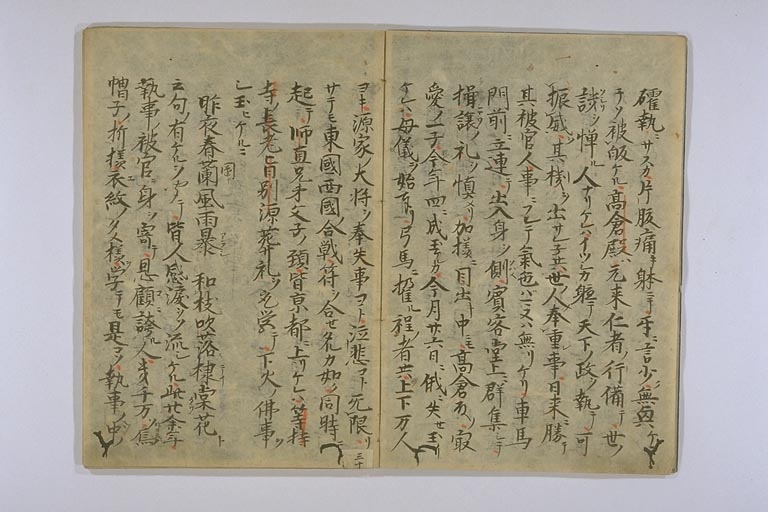 確執ニサスガ片腹痛キ躰ニテ互ニ言少ク無興ケニ
テソ被皈ケル高倉殿ハ元来仁者ノ行備テ世ノ
誹ヲ憚ル人ナリケレハイツシカ軈テ天下ノ政ノ執テ可
振威ヲ其機ヲ出サレ子共世ノ人奉重事日来ニ勝テ
其被官人事ニフレテ氣色バマヌハ無リケリ車馬
門前ニ立連テ出入身ヲ側メ賓客堂上ニ群集シテ
揖譲ノ礼ヲ慎メリ加様ニ目出中ニ高倉殿ノ最
愛ノ一子今年四ニ成玉ケルカ今月廿六日俄ニ失セ玉ヒ
ケレハ母儀ヲ始奉リ弓馬ニ携ル程ノ者共上下万人
ヨキ源家ノ大将ヲ奉失事ヨト泣悲コト无限リ
サテモ東國西國ノ合戰符ヲ合セタルカ如ク同時ニ
起テ師直兄弟父子ノ頚皆京都ニ上リケレハ等持
寺ノ長老旨別源葬礼ヲ取営テ下火ノ佛事ヲ
シ玉ヒケルニ
園
昨夜春蘭風雨暴 和枝吹落棣棠花ト
云句ノ有ケルヲ聞テ皆人感涙ヲソ流シケル此廿余年
執事ノ被官ニ身ヲ寄テ恩顧ニ誇ル人幾千万ソ烏
帽子ノ折様衣紋ノタメ様ヲ学テモ是コソ執事ノ中ノ